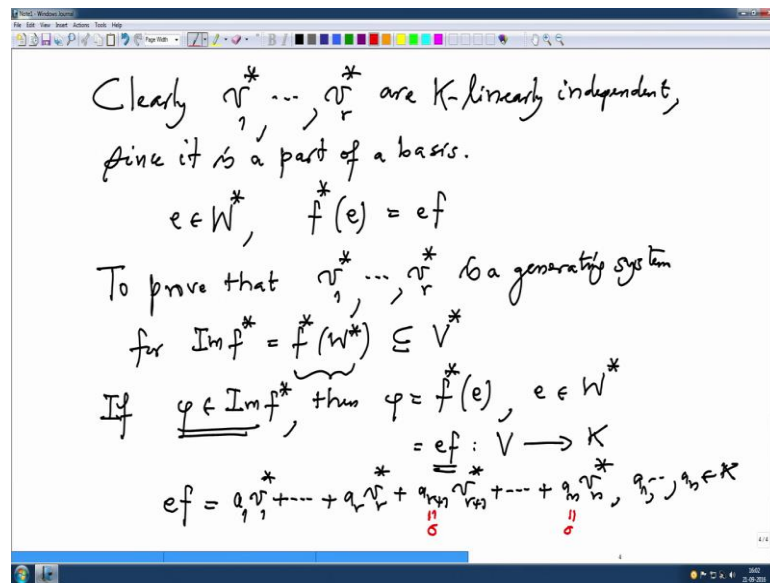 Note1 - Windows Journal
File Edit View Insert Actions Tools Help
Page Width
B I
Clearly v₁*, ..., vᵣ* are K-linearly independent,
since it is a part of a basis.
e ∈ W*, f*(e) = ef
To prove that v₁*, ..., vᵣ* is a generating system
for Im f* = f*(W*) ⊆ V*
If φ ∈ Im f*, then φ = f*(e), e ∈ W*
= ef : V → K
ef = a₁v₁* + ... + aᵣvᵣ* + aᵣ₊₁vᵣ₊₁* + ... + aₙvₙ*, a₁, ..., aₙ ∈ K
= 0 = 0
4/4
4
16:02
21-09-2018